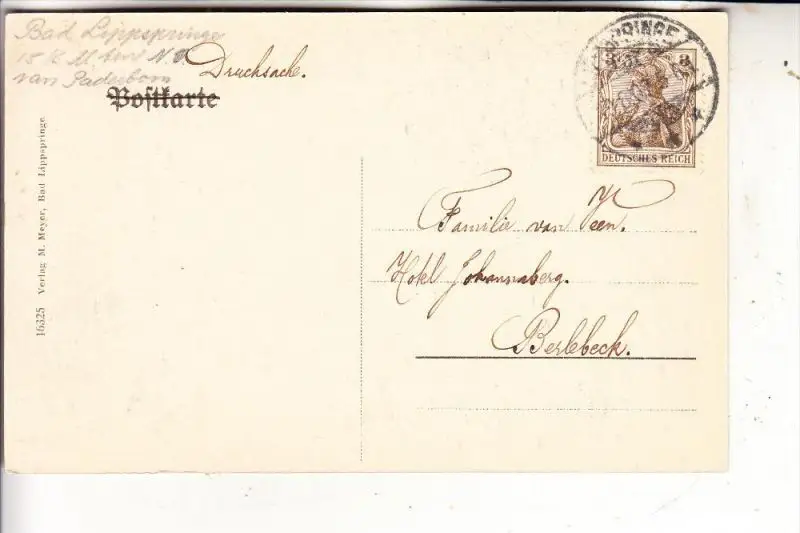 Bad Lippspringe
15 K.M.
van Paderborn
Drucksache.
Postkarte
PPSPRINGE
3 3
DEUTSCHES REICH
Familie van Veen.
Hotel Johannaberg.
Berlebeck.
16325 Verlag M. Meyer, Bad Lippspringe.